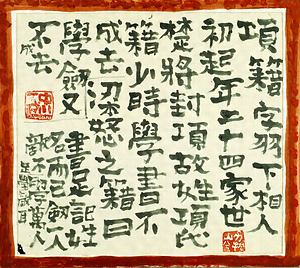 項籍字羽下相人
初起年二十四家世
楚將封項故姓項氏
籍少時學書不
成去梁怒之籍曰
學劍又
不成去
書足記姓
名而已劍一人
敵不學萬人